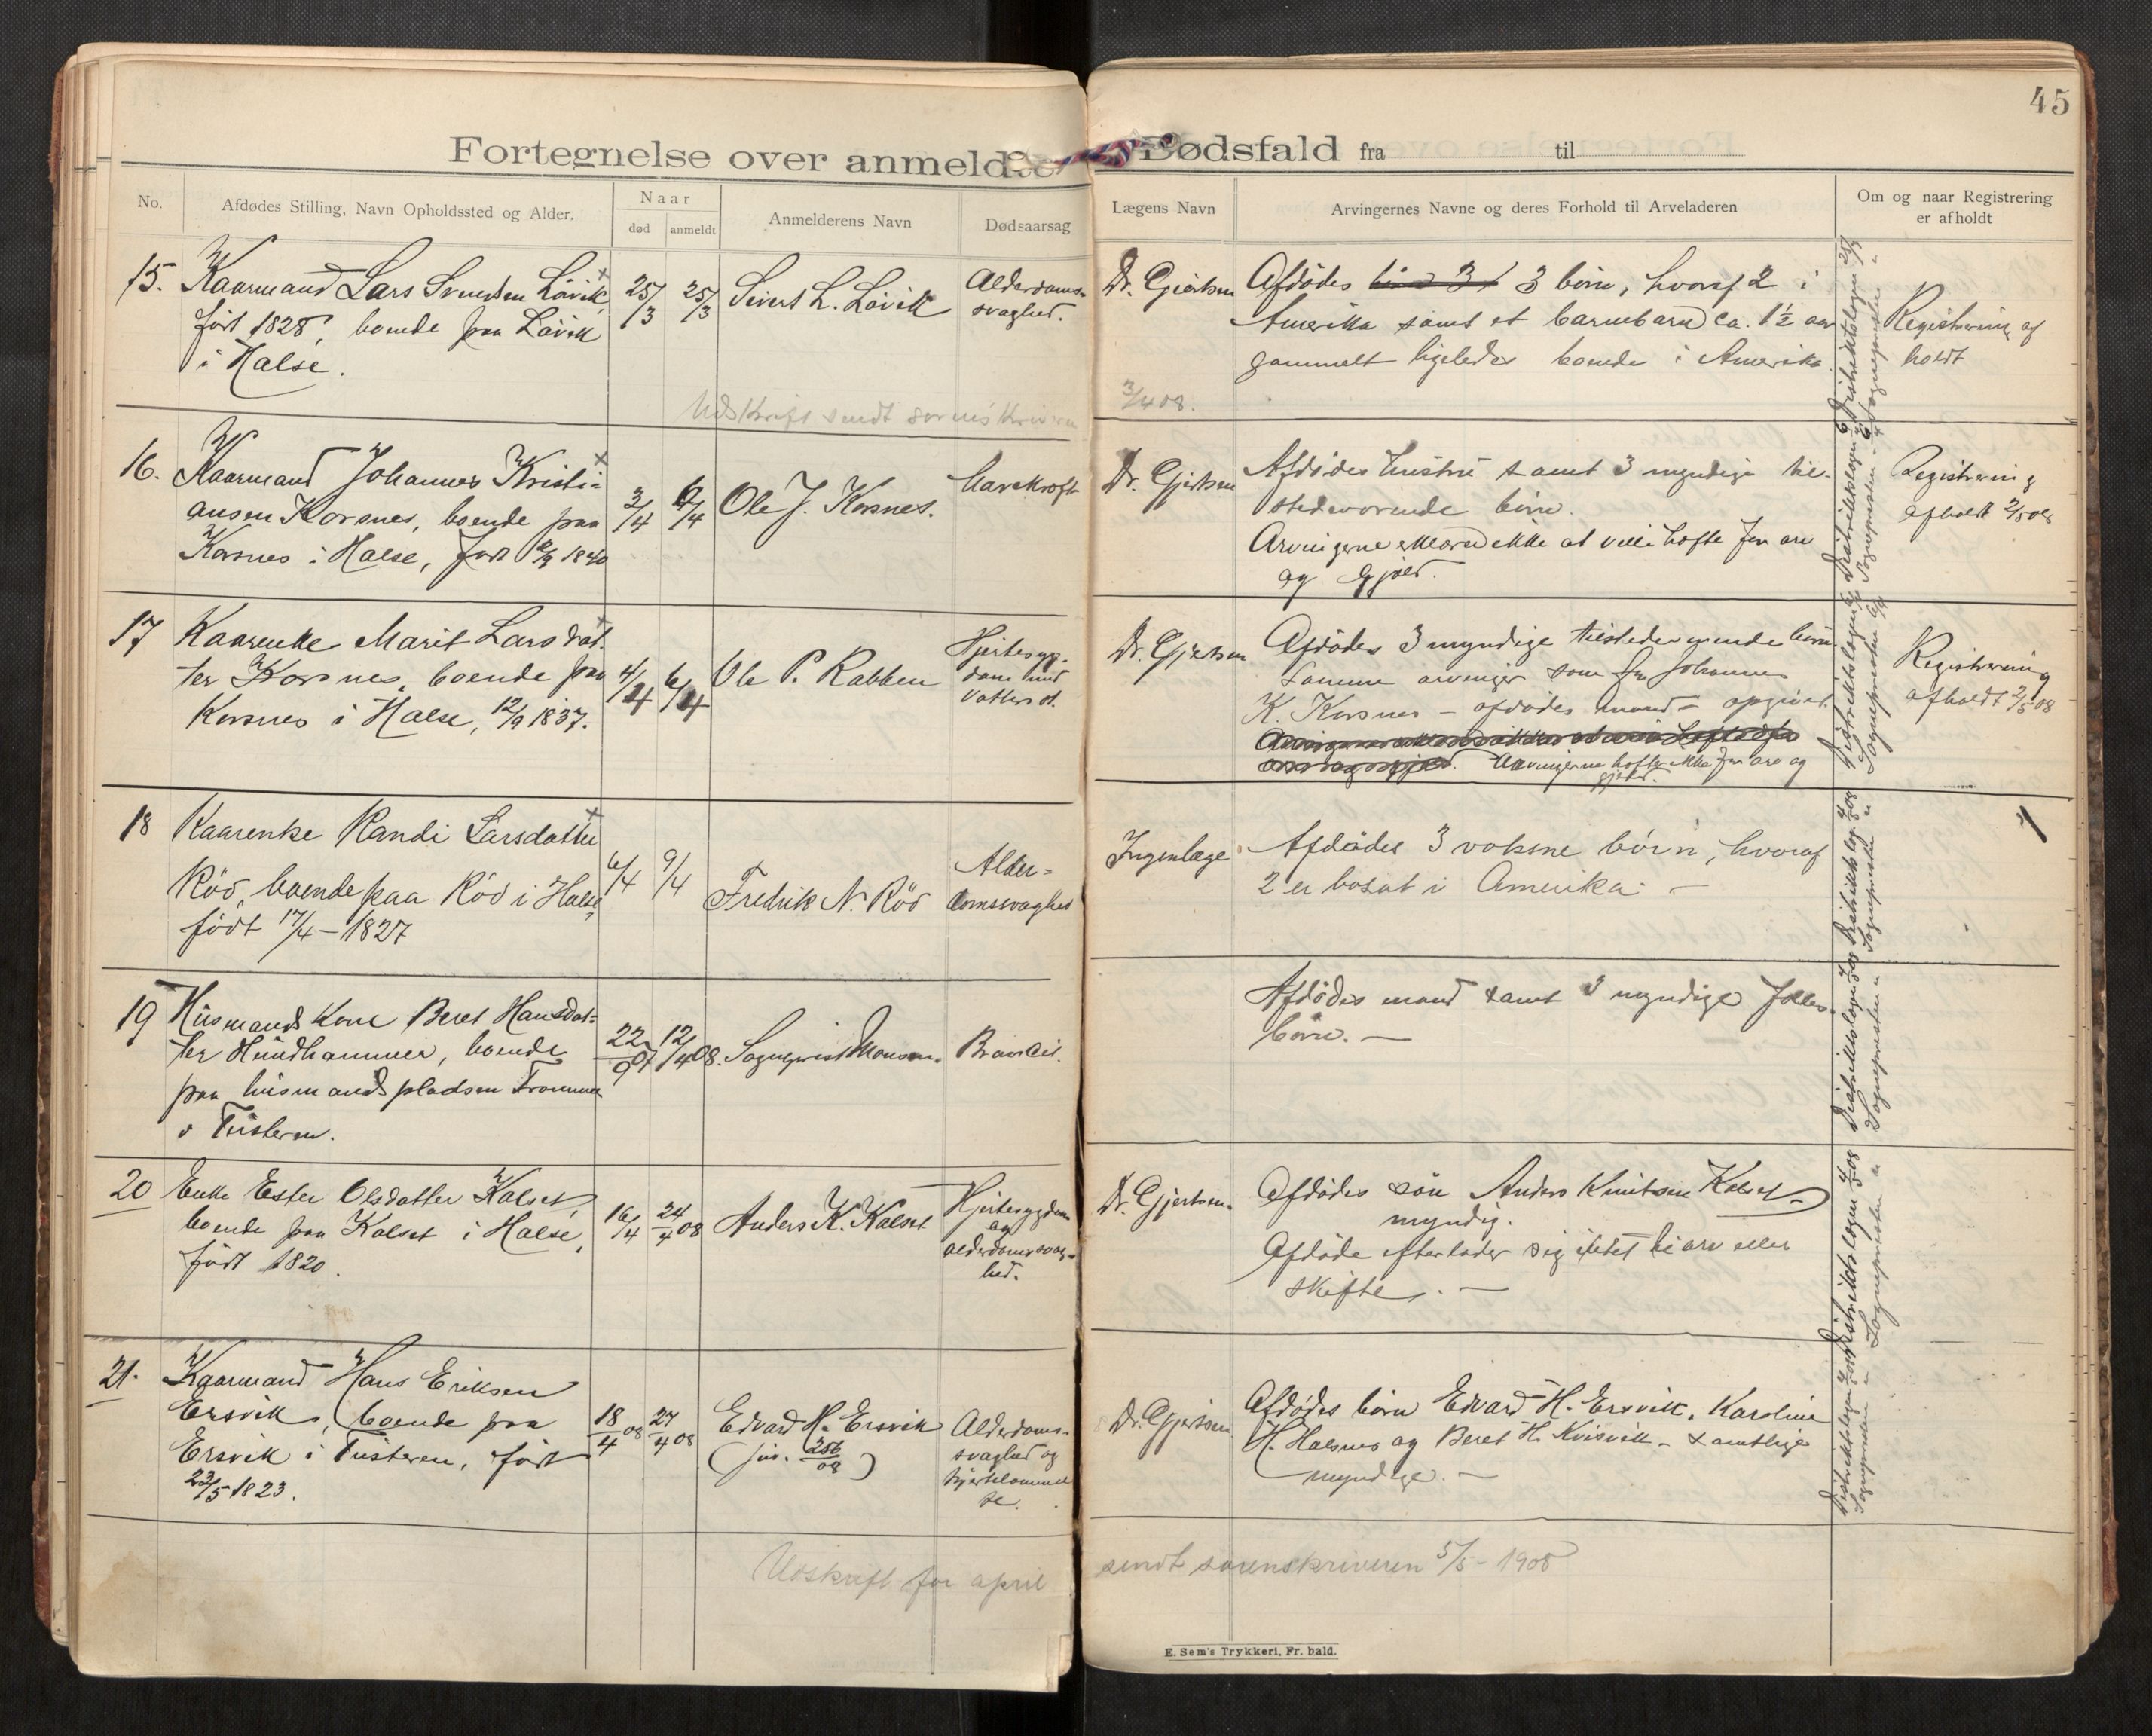 45
Fortegnelse over anmeldte Dødsfald fra til
No.
Afdødes Stilling, Navn Opholdssted og Alder.
Naar
død
anmeldt
Anmelderens Navn
Dødsaarsag
Lægens Navn
Arvingernes Navne og deres Forhold til Arveladeren
Om og naar Registrering
er afholdt
15.
Kaarmand Lars Svendsen Lövik,
født 1828, boende paa Lövik
i Halse.
25/3
25/3
Sivert L. Lövik
Alderdoms-
svaghed.
Dr. Gjertsen
Afdödes 3 börn, hvoraf 2 i
Amerika samt et barnebarn ca. 1½ aar
gammelt ligeledes boende i Amerika.
Registrering af
holdt
Udskrift sendt sorenskriveren
3/4 08.
16.
Kaarmand Johannes Kristi=
ansen Korsnes, boende paa
Korsnes i Halse, født 1840
3/4
6/4
Ole J. Korsnes.
Mavekræft
Dr. Gjertsen
Afdödes hustru samt 3 myndige til-
stedeværende börn.
Arvingerne erklærede ikke at ville hefte for arv
og Gjæld.
Registrering
afholdt 2/5 08
17
Kaarenke Marit Larsdat-
ter Korsnes, boende paa
Korsnes i Halse, 12/9 1837.
4/4
6/4
Ole P. Rabben
Hjertesyg-
dom med
vattersot.
Dr. Gjertsen
Afdödes 3 myndige tilstedeværende börn
Samme arvinger som for Johannes
K. Korsnes – afdödes mand – opgivet.
Arvingerne hefter ikke for arv og
gjæld.
Registrering
afholdt 2/5 08
18
Kaarenke Randi Larsdatter
Röd, boende paa Röd i Halse,
født 17/4 – 1827
6/4
9/4
Fredrik N. Röd
Alder=
domssvaghed
Ingen læge
Afdödes 3 voksne börn, hvoraf
2 er bosat i Amerika. –
19
Husmands Kone Beret Hansdat=
ter Hundhammer, boende
paa husmandspladsen
i Tusteren.
22/9 07
12/4 08.
Sogneprest Monsen.
Afdödes mand samt 3 myndige fælles
börn. –
20
Enke Ester Olsdatter Kalset,
boende paa Kalset i Halse,
født 1820.
16/4
24/4 08
Anders K. Kalset
Hjertesygdom
og
alderdomssvag-
hed.
Dr. Gjertsen.
Afdödes sön Anders Knutsen Kalset –
myndig.
Afdöde efterlader sig intet til arv eller
skifte. –
21.
Kaarmand Hans Eriksen
Ersvik, boende paa
Ersvik i Tusteren, født
23/5 1823.
18/4 08
27/4 08
Edvard H. Ersvik
Alderdoms-
svaghed og
hjertelammel
se.
Dr. Gjertsen
Afdödes börn Edvard H. Ersvik, Karoline
H. Halsnes og Beret H. Kvisvik – samtlige
myndige. –
Udskrift for april
sendt sorenskriveren 5/5 – 1908
E. Sem's Trykkeri, Fr. hald.